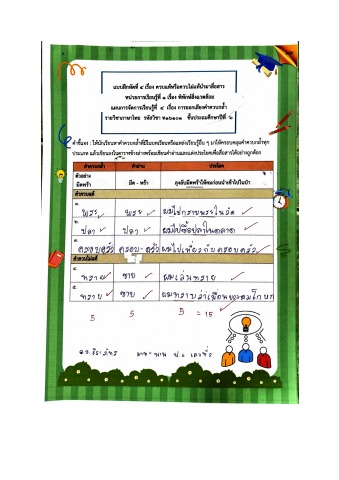 แบบฝึกหัดที่ ๔ เรื่อง ควบแท้หรือควบไม่แท้นำมาสื่อสาร
หน่วยการเรียนรู้ที่ ๑ เรื่อง พิทักษ์สิ่งแวดล้อม
แผนการจัดการเรียนรู้ที่ ๔ เรื่อง การออกเสียงคำควบกล้ำ
รายวิชาภาษาไทย รหัสวิชา ท๑๖๑๐๑ ชั้นประถมศึกษาปีที่ ๖
คำชี้แจง : ให้นักเรียนหาคำควบกล้ำที่มีในบทเรียนหรือแหล่งเรียนรู้อื่น ๆ มาให้ครอบคลุมคำควบกล้ำทุก
ประเภท แล้วเขียนลงในตารางข้างล่างพร้อมเขียนคำอ่านและแต่งประโยคเพื่อสื่อสารได้อย่างถูกต้อง
คำควบกล้ำ คำอ่าน ประโยค
ตัวอย่าง
มีดพร้า มีด - พร้า ลุงจับมีดพร้าให้แน่นก่อนนำเข้าไปในป่า
คำควบแท้
๑.
พระ พระ ผมไปกราบพระในวัด
๒.
ปลา ปลา ผมไปซื้อปลาในตลาด
๓.
ครอบครัว ครอบ-ครัว ผมไปเที่ยวกับครอบครัว
คำควบไม่แท้
๔.
ทราย ซาย ผมเล่นทราย
๕.
ทราบ ซาบ ผมทราบว่าเพื่อน
5 5 5 = 15